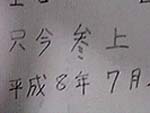 只今参上
平成8年7月